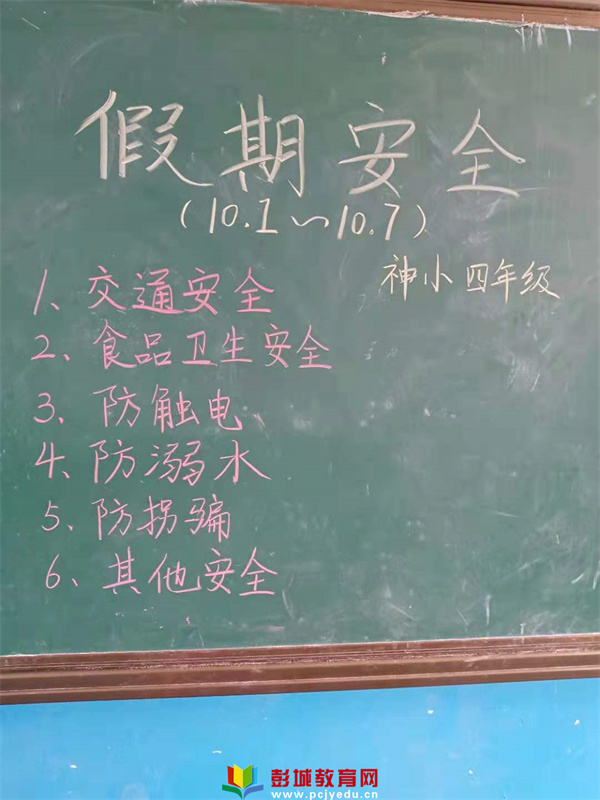 假期安全
(10.1~10.7)
神小四年级
1、交通安全
2、食品卫生安全
3、防触电
4、防溺水
5、防拐骗
6、其他安全
彭城教育网
www.pcjyedu.cn